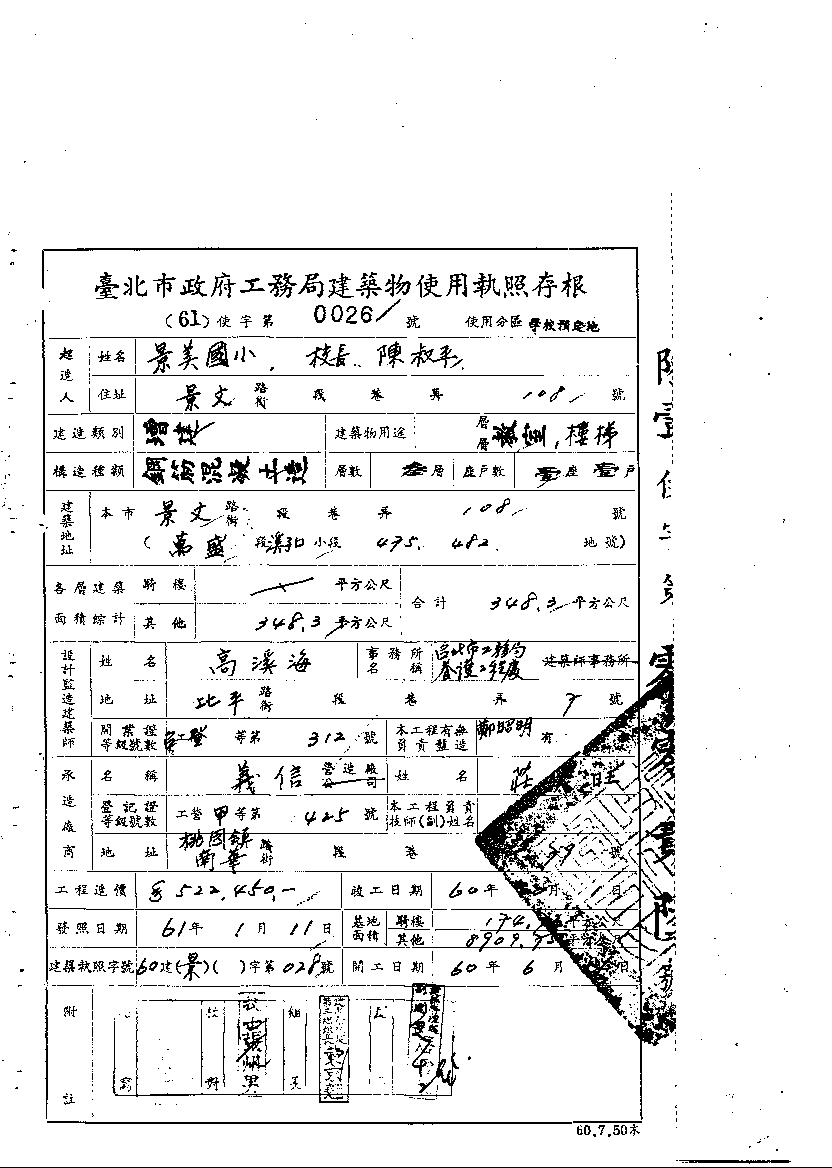 臺北市政府工務局建築物使用執照存根
(61)使字第 0026 號 使用分區 學校預定地
起造人 姓名 景美國小 校長 陳叔平
住址 景文 路街 段 巷 弄 108 號
建造類別 增建 建築物用途 層層 教室,樓梯
構造種類 鋼筋混凝土造 層數 叁層 座戶數 壹座壹戶
建築地址 本市 景文 路街 段 巷 弄 108 號
(萬盛 段 溪子口 小段 475. 482. 地號)
各層建築面積綜計 騎樓 平方公尺 合計 348.3 平方公尺
其他 348.3 平方公尺
設計監造建築師 姓名 高溪海 事務所名稱 台北市工務局養護工程處 建築師事務所
地址 北平 路街 段 巷 弄 7 號
開業證等級號數 工登 等第 312 號 本工程有無負責監造 鄭昭明 有
承造廠商 名稱 義信 營造廠公司 姓名 莊 旺
登記證等級號數 工營 甲 等第 425 號 本工程負責技師(副)姓名
地址 桃園鎮南華 路街 段 巷 99 號
工程造價 522,450.- 竣工日期 60年 1日
發照日期 61年 1月 11日 基地面積 騎樓 174.
其他 8909.
建築執照字號 60建(景)( )字第028號 開工日期 60年 6月 日
附註
60.7.50本